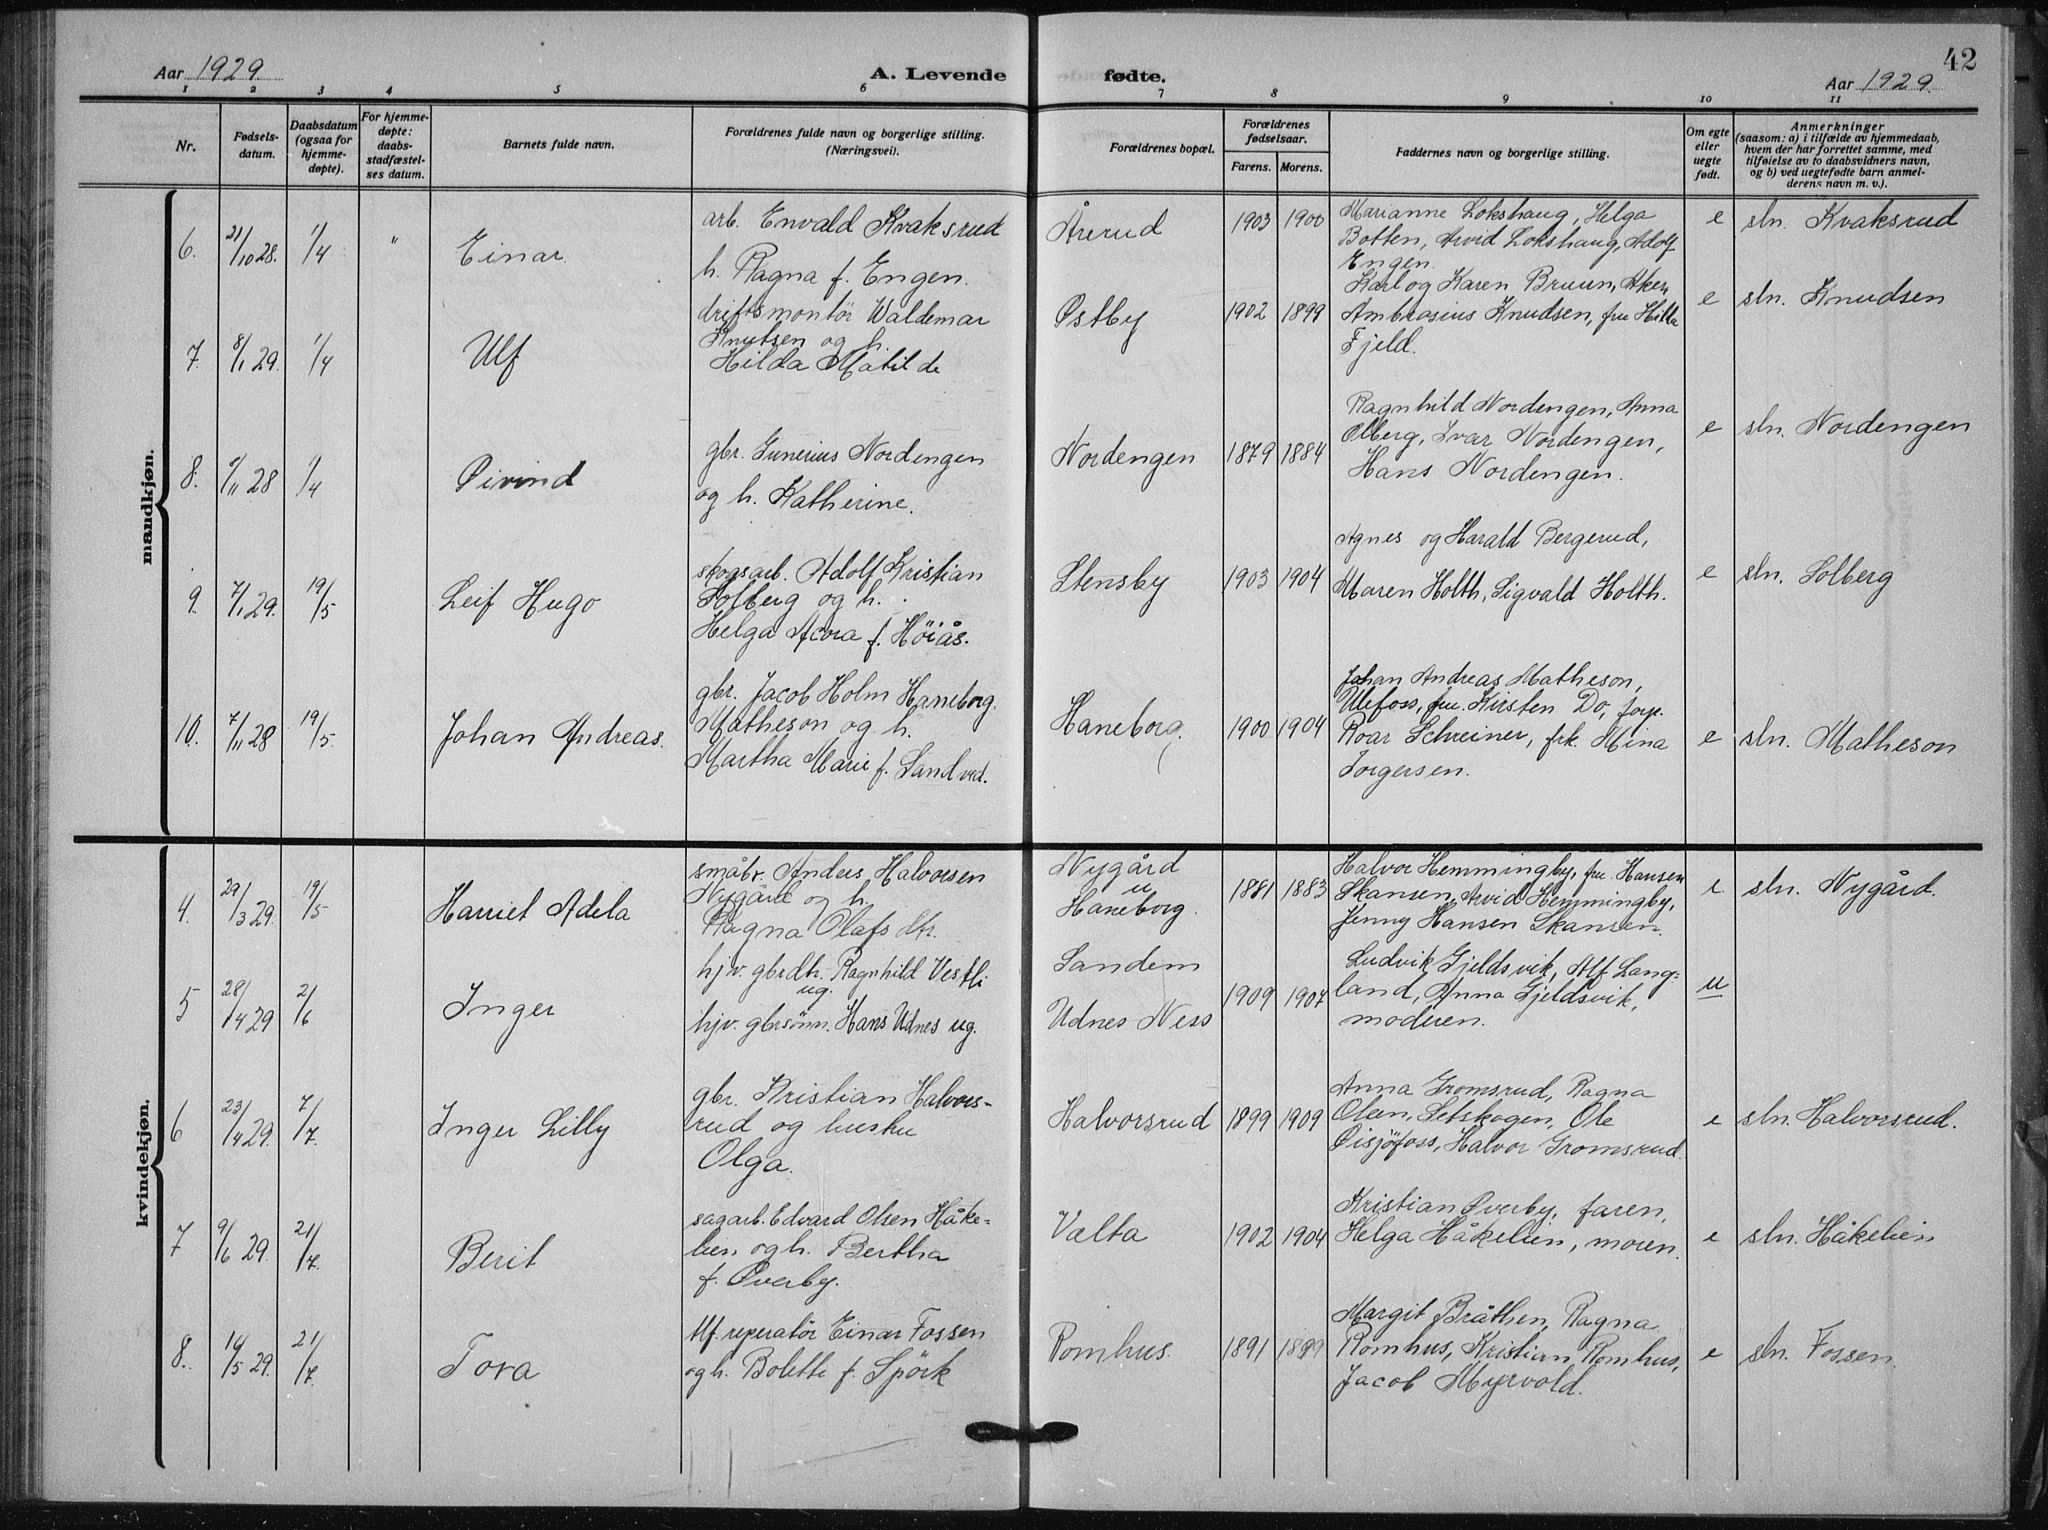 42
Aar 1929.
A. Levende
fødte.
Aar 1929.
1 2 3 4 5 6 7 8 9 10 11
Nr.
Fødsels-
datum.
Daabsdatum
(ogsaa for
hjemme-
døpte).
For hjemme-
døpte:
daabs-
stadfæstel-
ses datum.
Barnets fulde navn.
Forældrenes fulde navn og borgerlige stilling.
(Næringsvei).
Forældrenes bopæl.
Forældrenes
fødselsaar.
Farens. Morens.
Faddernes navn og borgerlige stilling.
Om egte
eller
uegte
født.
Anmerkninger
(saasom: a) i tilfælde av hjemmedaab,
hvem der har forrettet samme, med
tilføielse av to daabsvidners navn,
og b) ved uegtefødte barn anmel-
derens navn m. v.).
mandkjøn.
6. 21/10 28. 1/4 " Einar.
arb. Envald Kvaksrud
h. Ragna f. Engen.
Årerud 1903 1900
Marianne Lokshaug, Helga
Botten, Arvid Lokshaug, Adolf
Engen.
e sln. Kvaksrud
7. 8/1 29. 1/4 Ulf
driftsmontör Waldemar
Knutsen og h.
Hilda Matilde
Østby 1902 1899
Karl og Karen Bruun, Aken
Ambrosius Knudsen, fru Hilla
Fjeld.
e sln. Knudsen
8. /11 28 1/4 Øivind
gbr. Gunerius Nordengen
og h. Katherine.
Nordengen 1879 1884
Ragnhild Nordengen, Anna
Olberg, Ivar Nordengen,
Hans Nordengen.
e sln. Nordengen
9. 7/1 29. 19/5 Leif Hugo
skogsarb. Adolf Kristian
Solberg og h.
Helga f. Höiås.
Stensby 1903 1904
Agnes og Harald Bergerud,
Maren Holth, Sigvald Holth.
e sln. Solberg
10. 7/11 28 19/5 Johan Andreas.
gbr. Jacob Holm Haneborg.
Matheson og h.
Martha Marie f. Sandved.
Haneborg. 1900 1904
Johan Andreas Matheson,
Ulefoss, fru Kirsten Do, forp.
Roar Schreiner, frk. Mina
Torgersen.
e sln. Matheson
kvindekjøn.
4. 29/3 29. 19/5 Harriet Adela
småbr. Anders Halvorsen
Nygård og h.
Ragna Olafsdtr.
Nygård
u
Haneborg. 1881 1883
Halvor Hemmingby, fru Hansen
Skansen, Arvid Hemmingby,
Jenny Hansen Skansen.
e sln. Nygård.
5 28/4 29 2/6 Inger
hjv. gbrdtr. Ragnhild Vestli
ug.
hjv. gbrsönn. Hans Udnes ug.
Sandem
Udnes Ness 1909 1907
Ludvik Gjeldsvik, Alf Lang-
land, Anna Gjeldsvik,
moderen.
u
6 23/4 29. 7/7. Inger Lilly
gbr. Kristian Halvors-
rud og hustru
Olga.
Halvorsrud 1899 1909
Anna Gromsrud, Ragna
Olsen, Setskogen, Ole
Øisjöfoss, Halvor Gromsrud.
e sln. Halvorsrud.
7 9/6 29. 21/7. Berit
sagarb. Edvard Olsen Håke-
lien og h. Bertha
f. Øverby.
Valta 1902 1904
Kristian Øverby, faren,
Helga Håkelien, moren.
e sln. Håkelien
8. 16/5 29. 21/7. Tora
tlf. reperatör Einar Fossen
og h. Bolette f. Spörk
Romhus 1891 1899
Margit Bråthen, Ragna
Romhus, Kristian Romhus,
Jacob Myrvold.
e sln. Fossen.